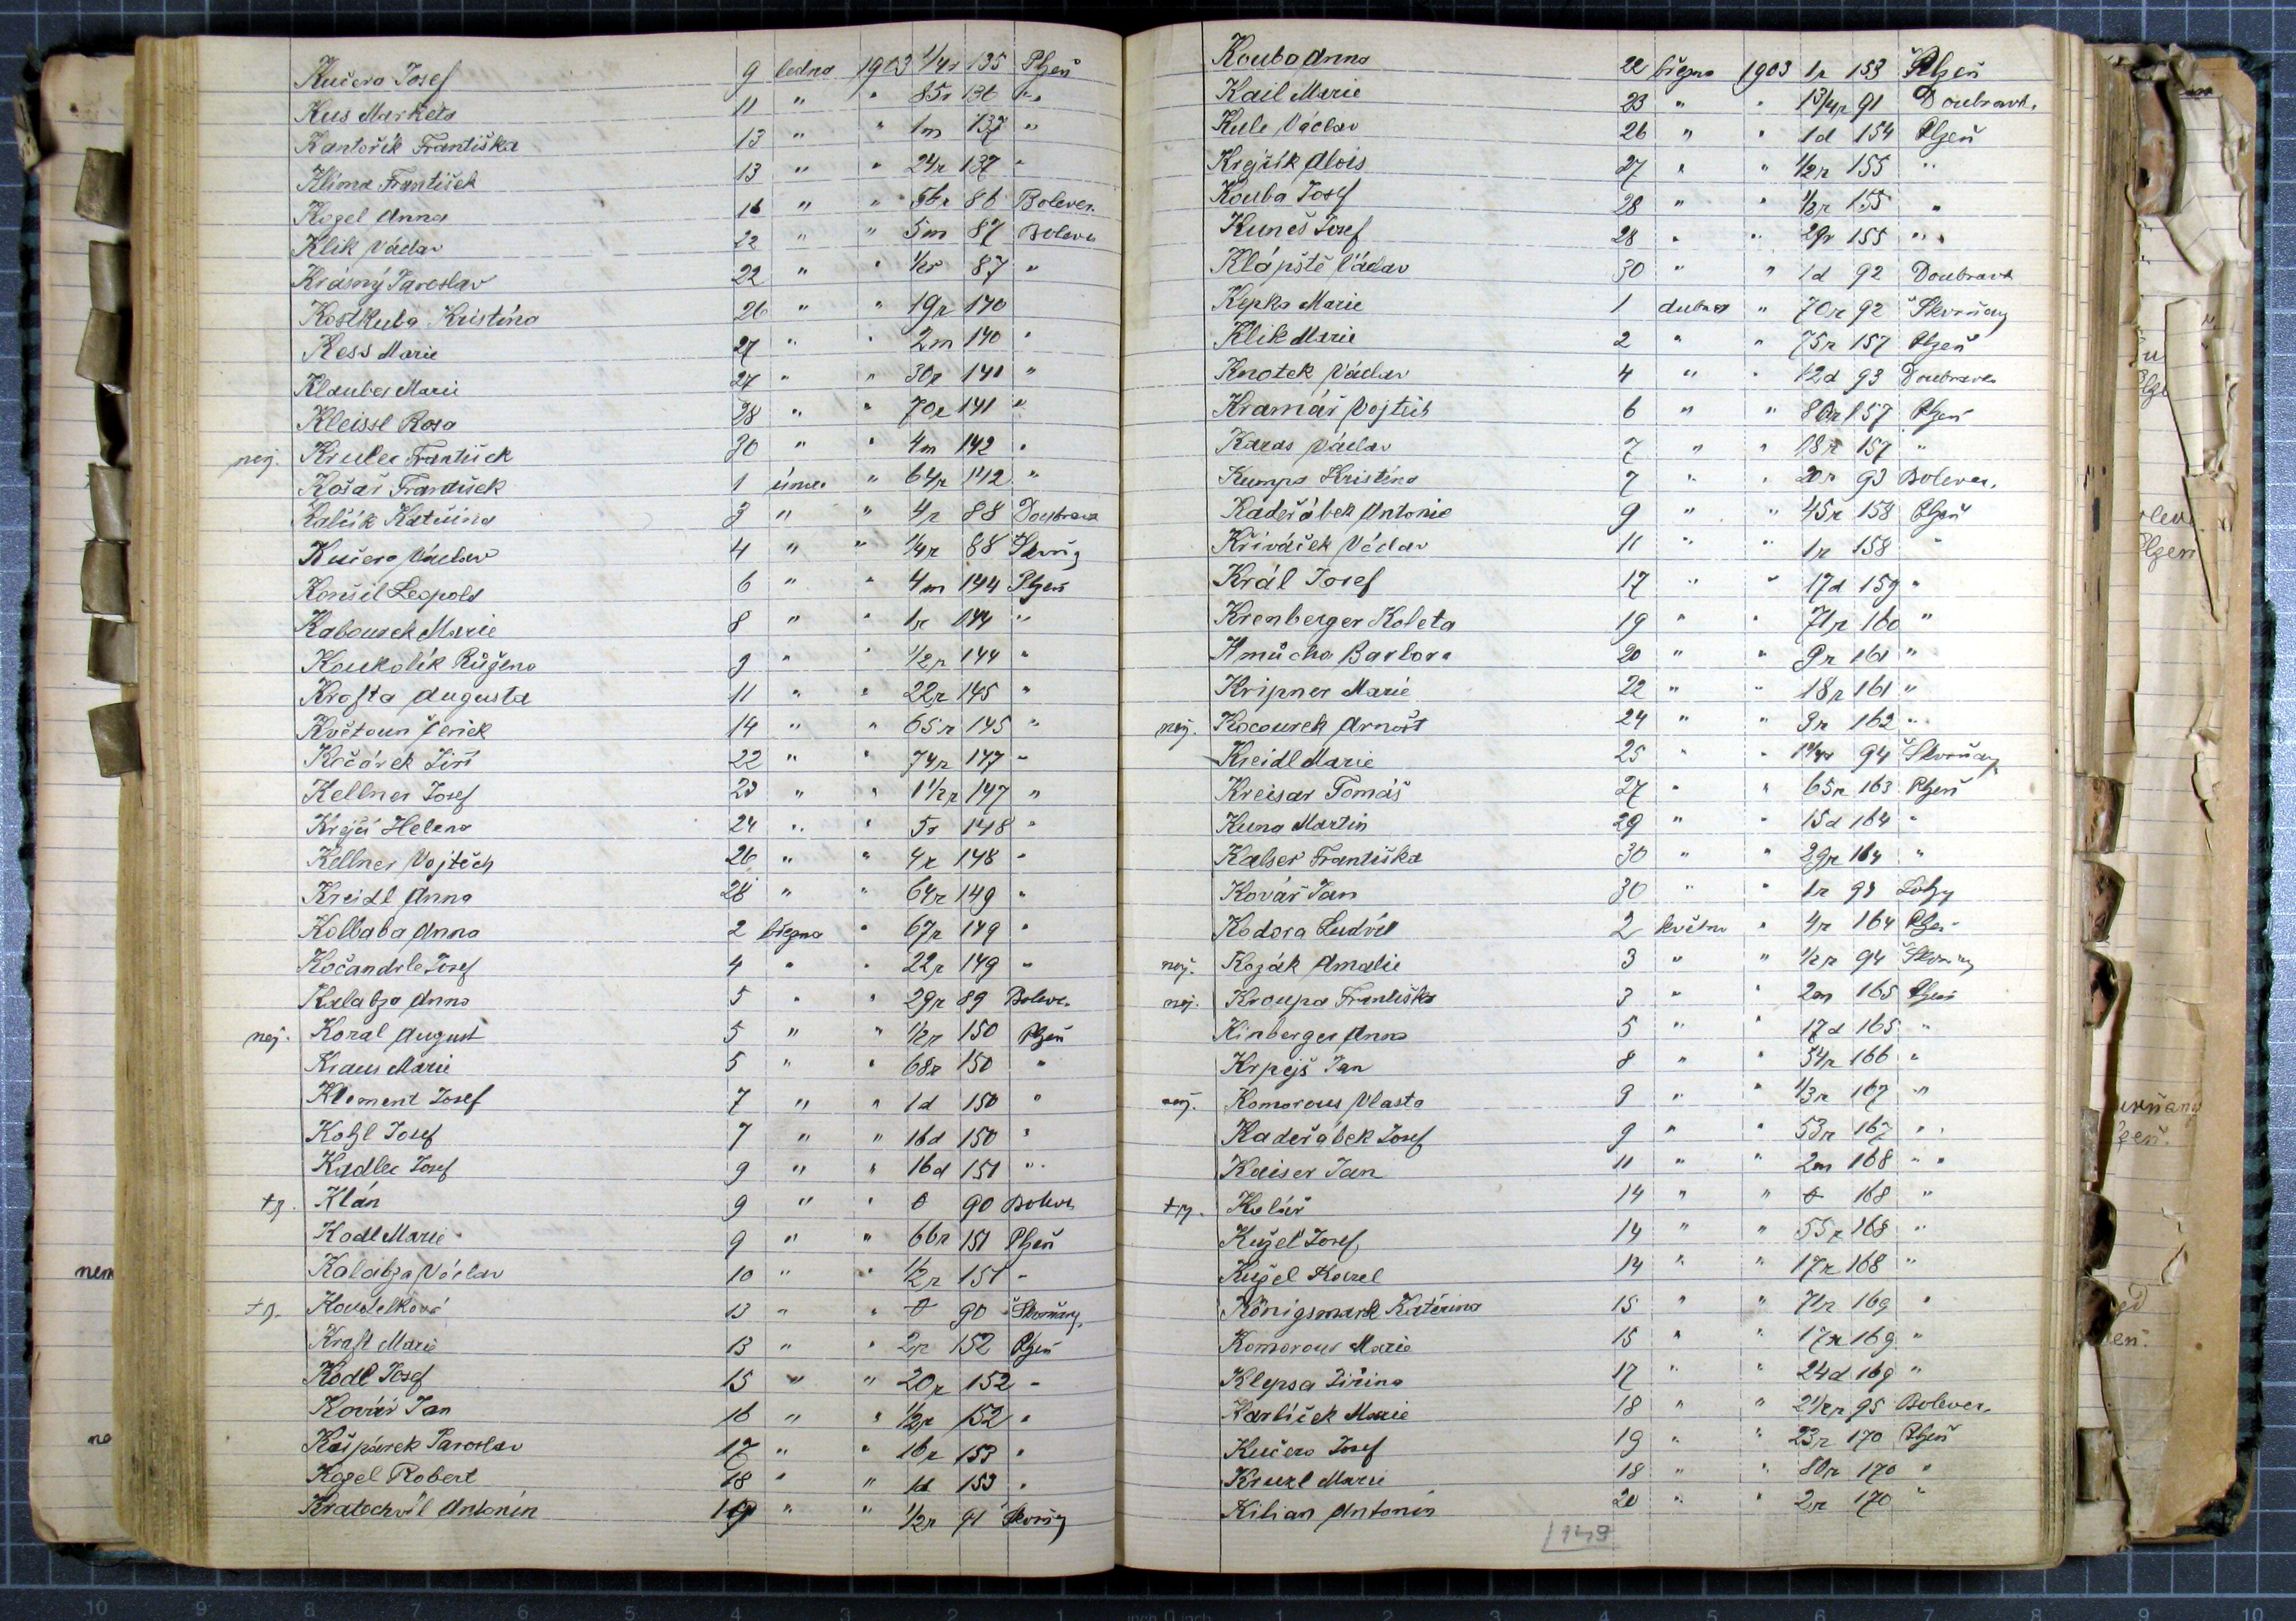 Kučera Josef 9 ledna 1903 1/4r 135 Plzeň
Kus Marketa 11 " " 85r 136 "
Kantořík Františka 13 " " 1m 137 "
Klíma František 13 " " 24r 137 "
Kogel Anna 16 " " 56r 86 Bolevec
Klik Václav 22 " " 5m 87 Bolevec
Krásný Jaroslav 22 " " 1/2r 87 "
Kostkuba Kristina 26 " " 19r 140
Kess Marie 27 " " 2m 140 "
Klauber Marie 27 " " 30r 141 "
Kleissl Rosa 28 " " 70r 141 "
nej. Krulec František 30 " " 4m 142 "
Košař František 1 února " 64r 142 "
Kalčík Kateřina 3 " " 4r 88 Doubrava
Kučera Václav 4 " " 1/4r 88
Konšil Leopold 6 " " 4m 144 Plzeň
Kabourek Marie 8 " " 1r 144 "
Koukolík Růžena 9 " " 1/2r 144 "
Krofta Augusta 11 " " 22r 145 "
Květoun 14 " " 65r 145 "
Kočárek Jiří 22 " " 74r 147 "
Kellner Josef 23 " " 1 1/2r 147 "
Krejčí Helena 24 " " 5r 148 "
Kellner Vojtěch 26 " " 4r 148 "
Kreidl Anna 28 " " 64r 149 "
Kolbaba Anna 2 března " 67r 149 "
Kočandrle Josef 4 " " 22r 149 "
Kalabza Anna 5 " " 29r 89 Boleve.
nej. Koral August 5 " " 1/2r 150 Plzeň
Kraus Marie 5 " " 68r 150 "
Klement Josef 7 " " 1d 150 "
Kohl Josef 7 " " 16d 150 "
Kadlec Josef 9 " " 16d 151 "
Klán 9 " " 0 90 Bolevec
Kodl Marie 9 " " 66r 151 Plzeň
Kalabza Václav 10 " " 1/2r 151 "
Koudelková 13 " " 0 90 Skvrňany
Kraft Marie 13 " " 2r 152 Plzeň
Kodl Josef 15 " " 20r 152 "
Kovář Jan 16 " " 1/2r 152 "
Kašpárek Jaroslav 17 " " 16r 153 "
Kogel Robert 18 " " 1d 153 "
Kratochvíl Antonín 19 " " 1/2r 91
Kouba Anna 22 března 1903 1r 153 Plzeň
Kail Marie 23 " " 1 3/4r 91 Doubravk.
Kule Václav 26 " " 1d 154 Plzeň
Krejčík Alois 27 " " 1/2r 155 "
Kouba Josef 28 " " 1/2r 155 "
Kuneš Josef 28 " " 29r 155 "
Klápště Václav 30 " " 1d 92 Doubravk
Kepka Marie 1 dubna " 70r 92 Skvrňany
Klik Marie 2 " " 75r 157 Plzeň
Knotek Václav 4 " " 12d 93 Doubravk
Kramář Vojtěch 6 " " 80r 157 Plzeň
Karas Václav 7 " " 18r 157 "
Kumpa Kristina 7 " " 20r 93 Bolevec.
Kadeřábek Antonie 9 " " 45r 158 Plzeň
Křiváček Václav 11 " " 1r 158 "
Král Josef 17 " " 17d 159 "
Krenberger Koleta 19 " " 71r 160 "
Kmůcha Barbora 20 " " 9r 161 "
Kripner Marie 22 " " 18r 161 "
nej. Kocourek Arnošt 24 " " 3r 162 "
Kreidl Marie 25 " " 94 Skvrňany
Kreisar Tomáš 27 " " 65r 163 Plzeň
Kuna Martin 29 " " 15d 164 "
Kalser Františka 30 " " 29r 164 "
Kovář Jan 30 " " 1r 94 Lobzy
Kodora Ludvík 2 května " 4r 164 Plzeň
nej. Kozák Amalie 3 " " 1/2r 94 Skvrňany
nej. Kroupa Františka 3 " " 2m 165 Plzeň
Kinberger Anna 5 " " 17d 165 "
Krpejš Jan 8 " " 54r 166 "
nej. Komorous Vlasta 9 " " 1/3r 167 "
Kadeřábek Josef 9 " " 53r 167 "
Kaiser Jan 11 " " 2m 168 "
Kolář 14 " " 0 168 "
Kužel Josef 14 " " 55r 168 "
Kužel Karel 14 " " 17r 168 "
Königsmark Kateřina 15 " " 71r 169 "
Komorous Marie 15 " " 17r 169 "
Klepsa Jiřina 17 " " 24d 169 "
Karlíček Marie 18 " " 2 1/2r 95 Bolevec.
Kučera Josef 19 " " 23r 170 Plzeň
Kruzl Marie 18 " " 80r 170 "
Kilian Antonín 20 " " 2r 170 "
149